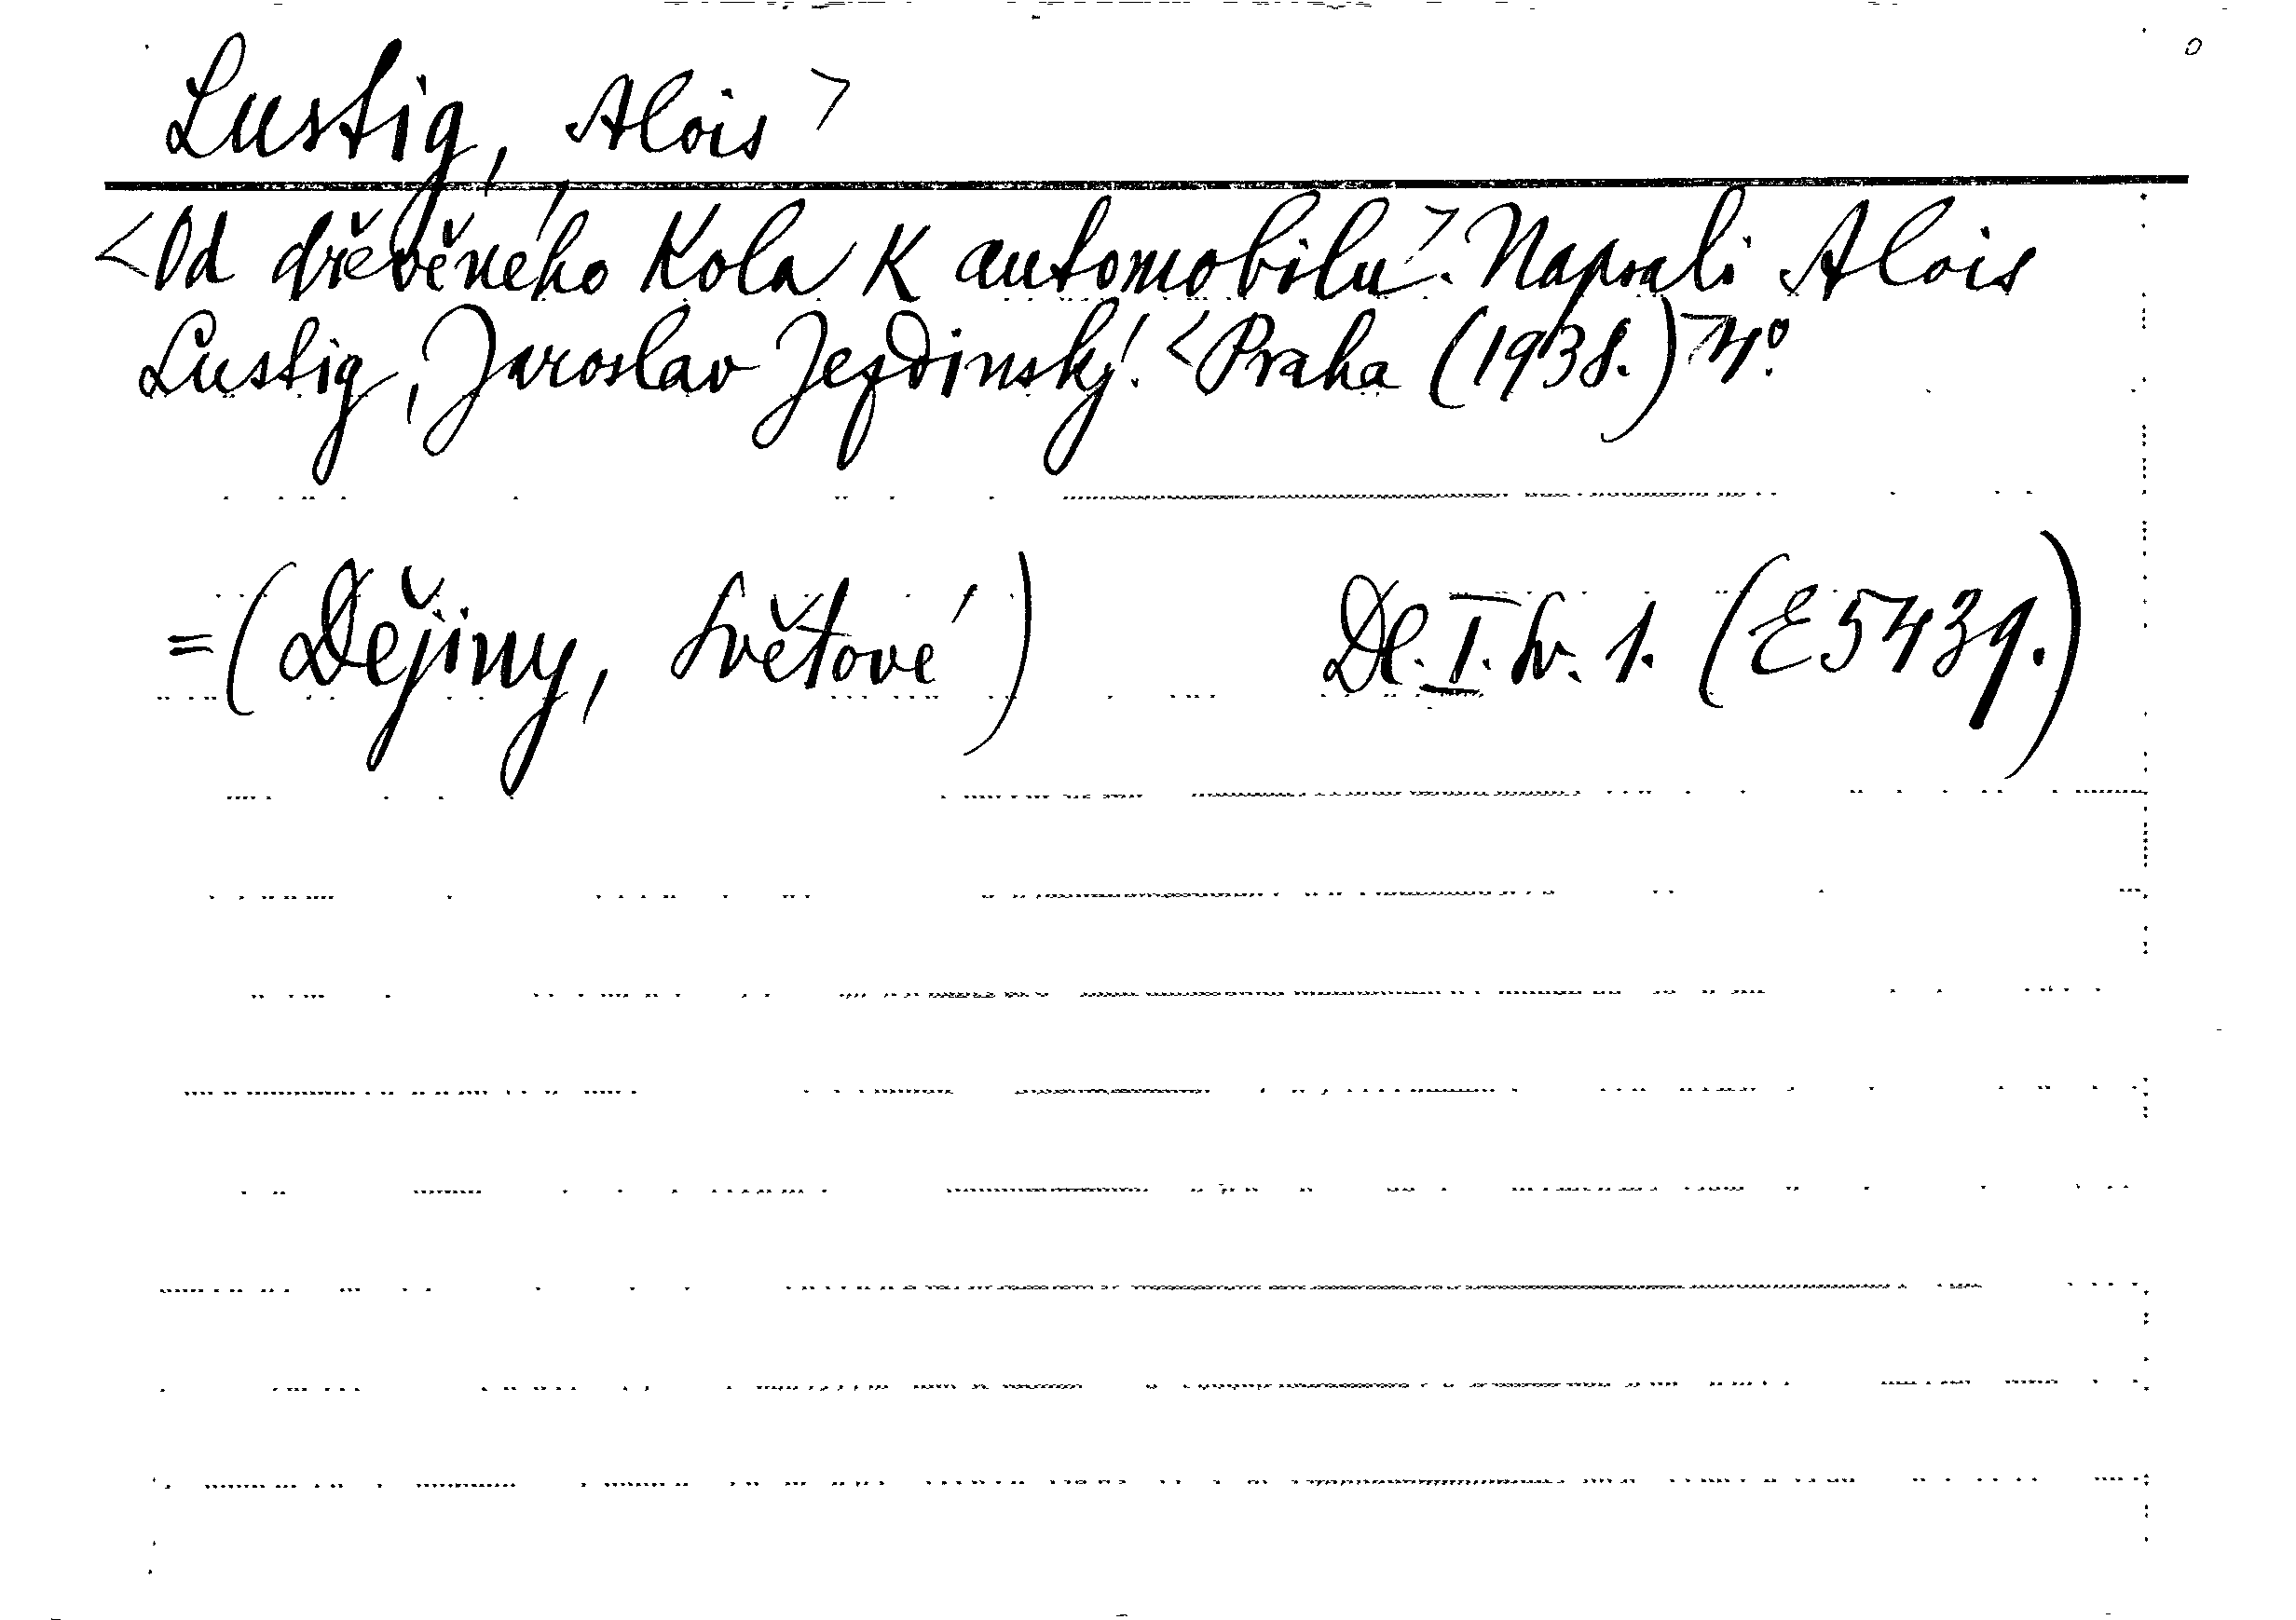 Lustig, Alois >
<Od dřevěného kola k automobilu>. Napsali Alois
Lustig, Jaroslav Jezdinský. <Praha (1938.)> 4°.
=(Dějiny, Světové) Dl. I. Sv. 1. (E5439.)